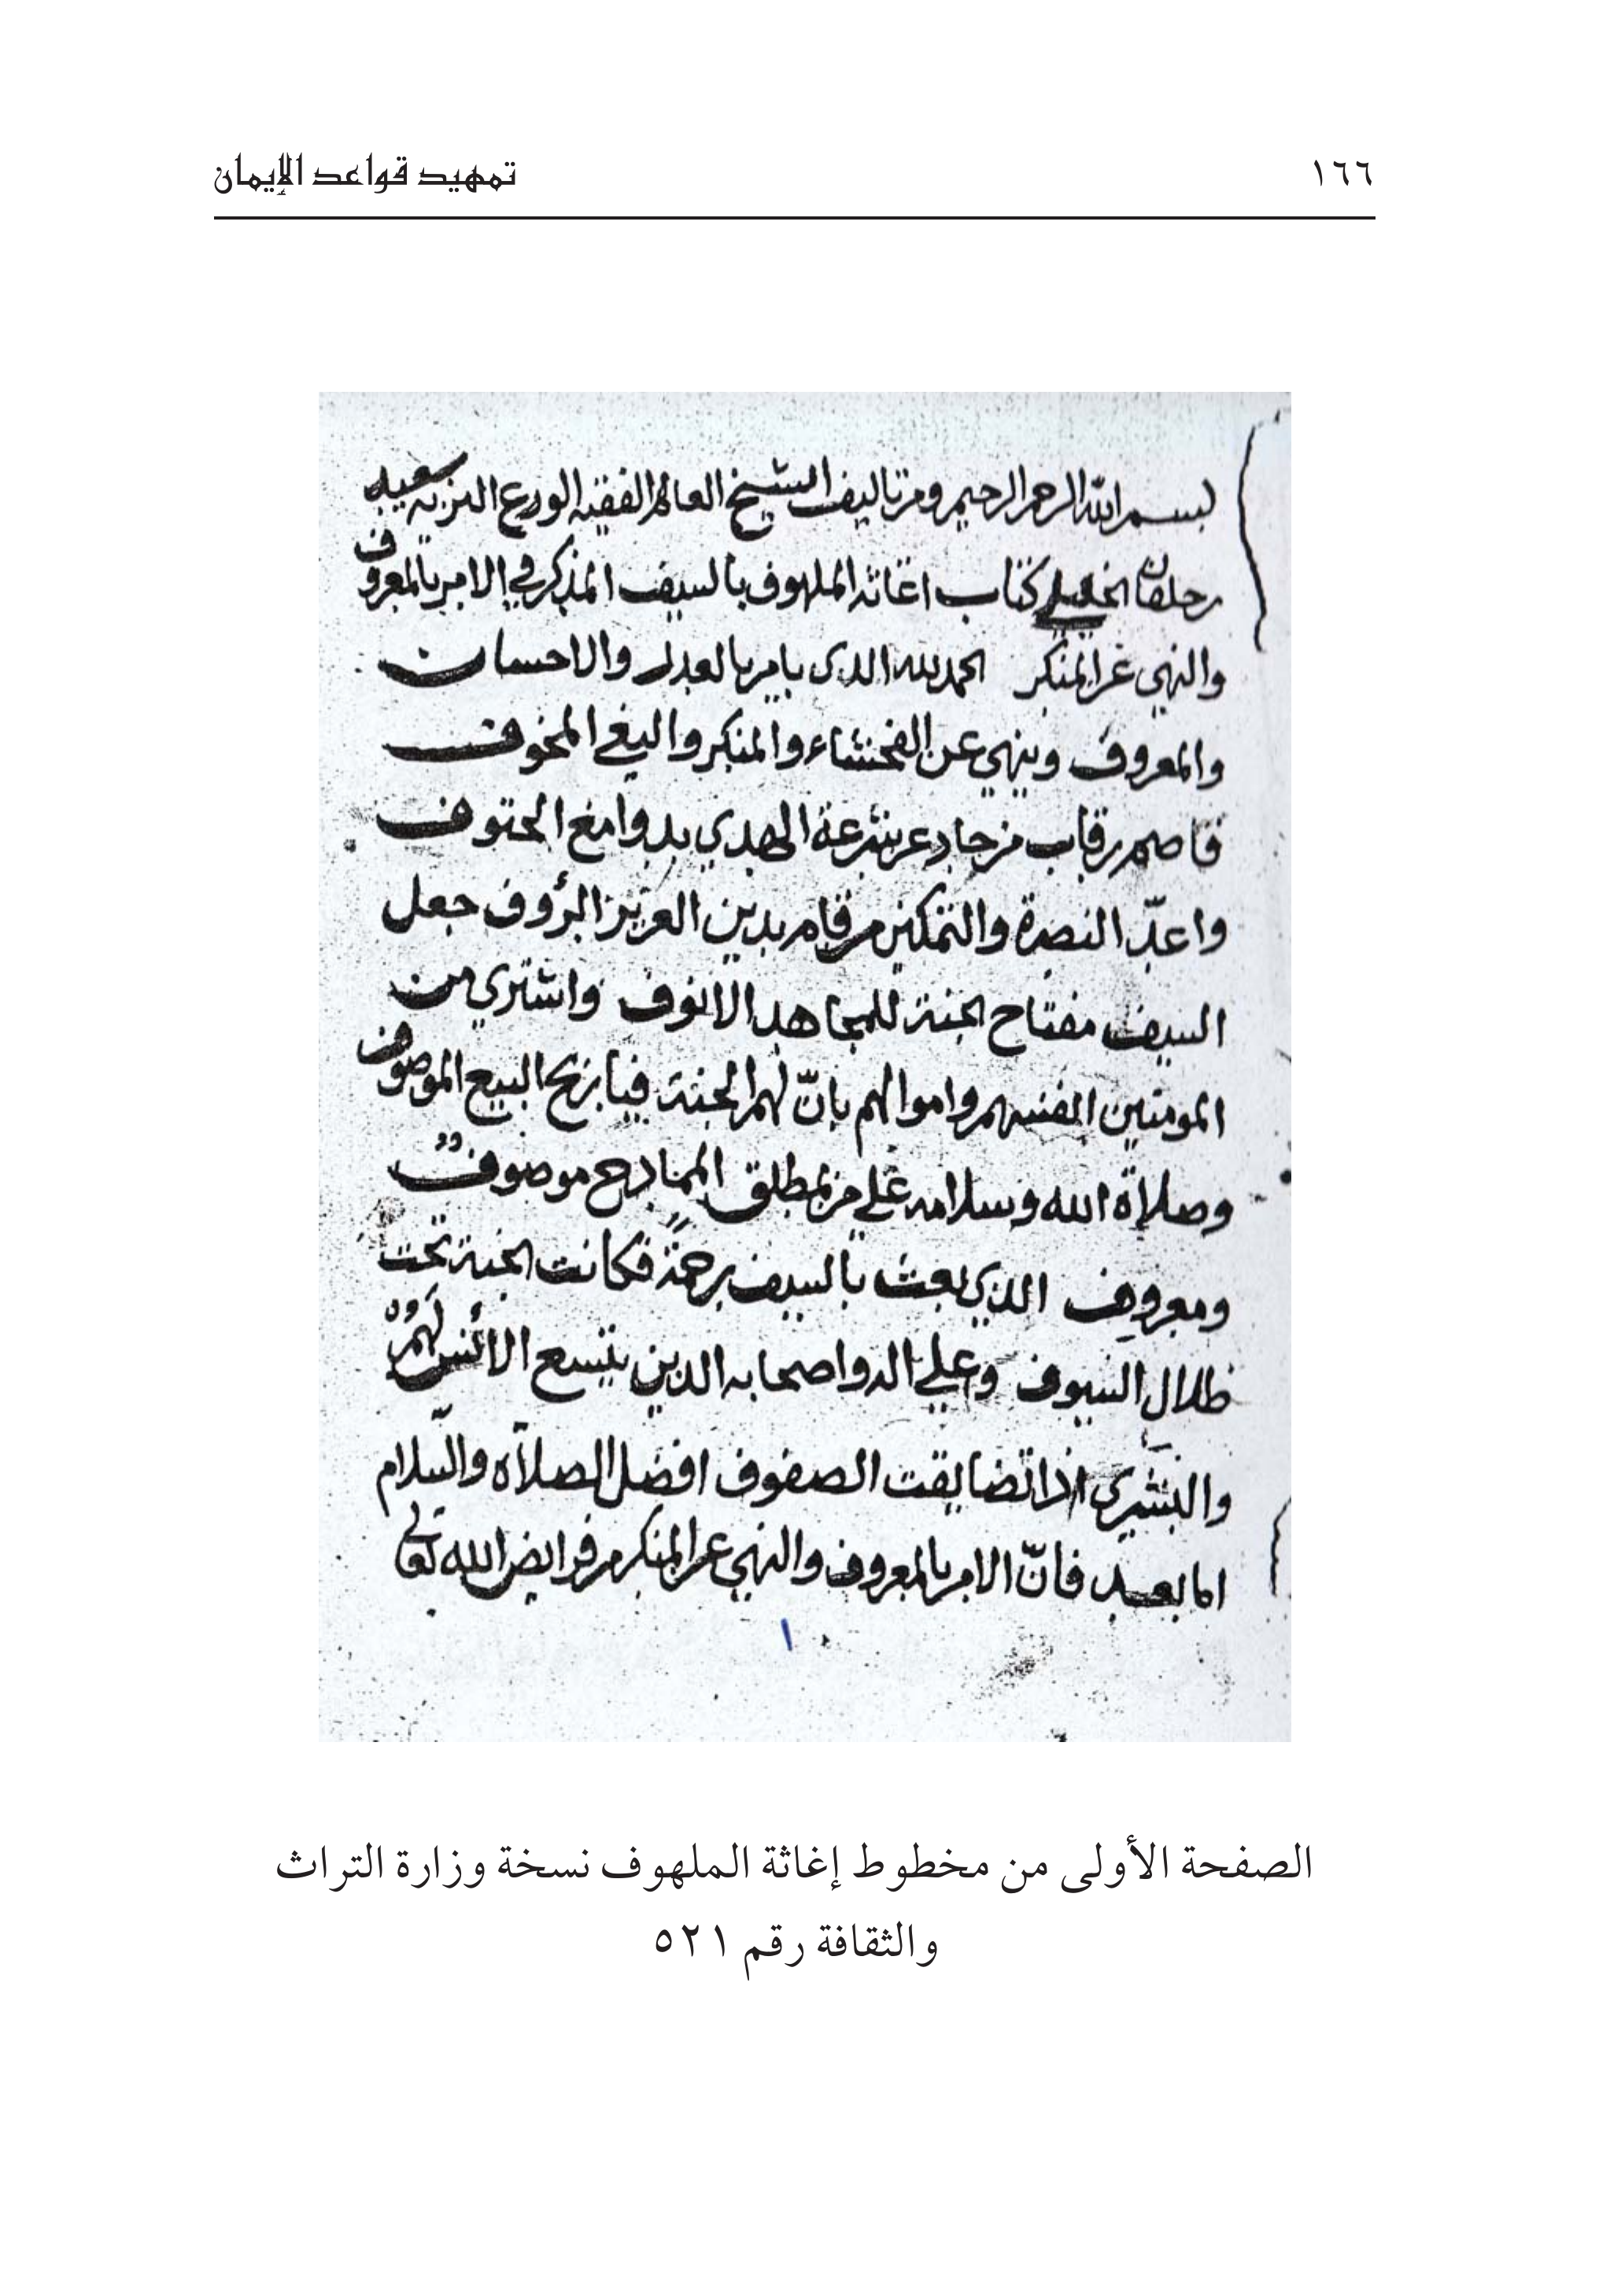 ١٦٦ تمهيد قواعد الإيمان
بسم الله الرحمن الرحيم ومن تاليف الشيخ العالم الفقيه الورع النزيه سعيد
بن خلفان الخليلي كتاب اغاثة الملهوف بالسيف المذكر في الامر بالمعروف
والنهي عن المنكر الحمد لله الذي يامر بالعدل والاحسان
والمعروف وينهي عن الفحشاء والمنكر والبغي المخوف
قاصم رقاب من حاد عن شرعة الهدي بدوامغ الحتوف
واعدّ النصرة والتمكين من قام بدين العزيز الرؤوف جعل
السيف مفتاح الجنة للمجاهد الانوف واشتري من
المومنين انفسهم واموالهم بانّ لهم الجنة فيا بزبح البيع الموصوف
وصلاة الله وسلامه علي من بمطلق المنادح موصوف
ومعروف الذي بعث بالسيف رحمة فكانت الجنة تحت
ظلال السيوف وعلي اله واصحابه الذين يتسع الانس لهم
والبشري اذا تضايقت الصفوف افضل الصلاة والسلام
اما بعد فانّ الامر بالمعروف والنهي عن المنكر من فرايض الله تعالي
١
الصفحة الأولى من مخطوط إغاثة الملهوف نسخة وزارة التراث
والثقافة رقم ٥٢١